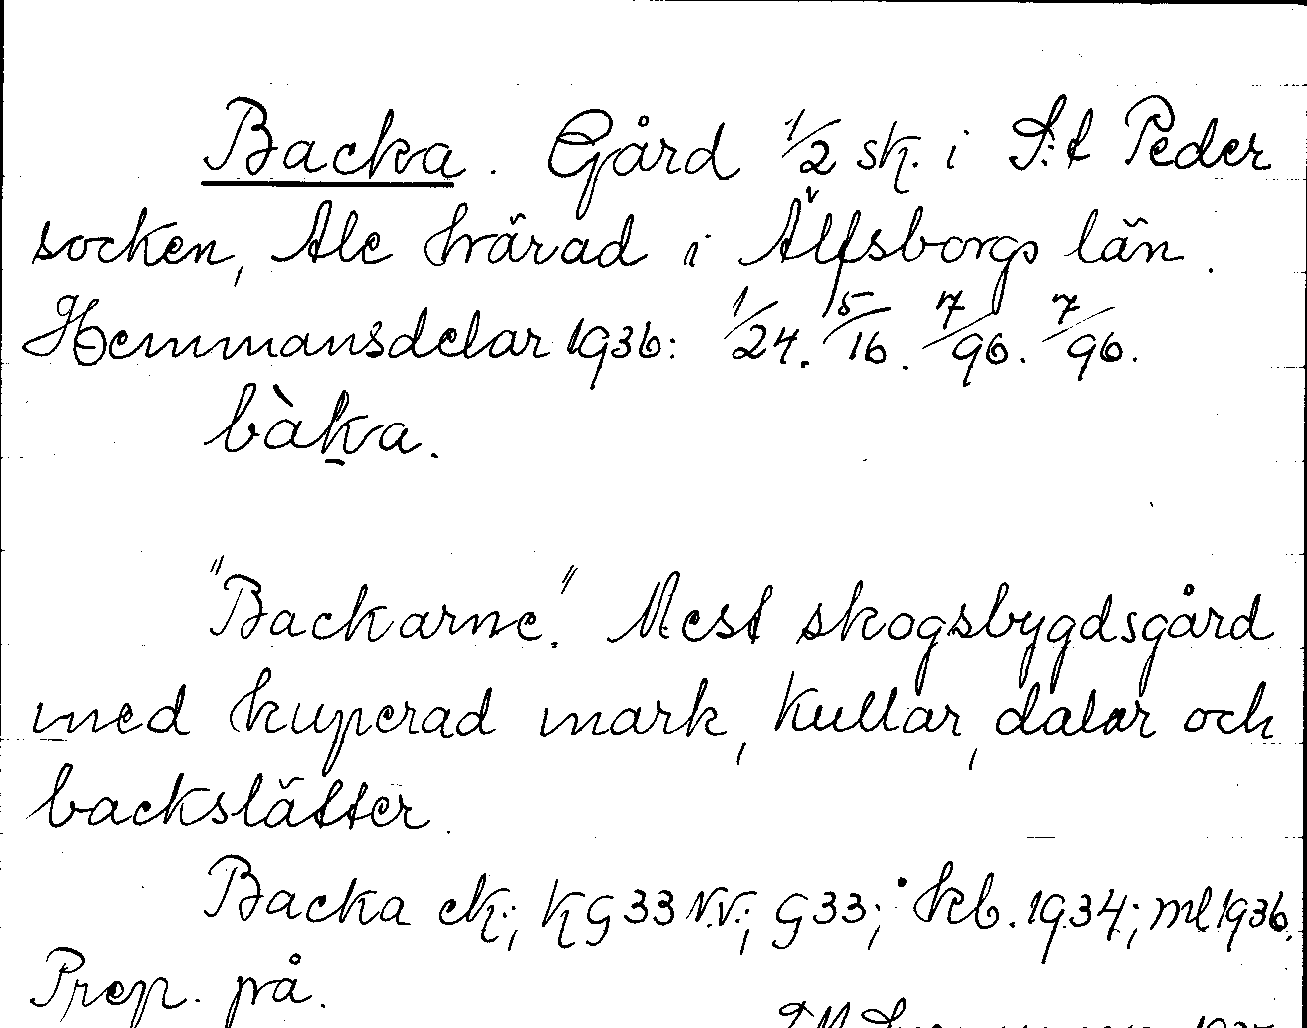 Backa. Gård 1/2 sk. i S:t Peder
socken, Ale härad i Älfsborgs län.
Hemmansdelar 1936: 1/24. 5/16. 7/96. 7/96.
bàka.
"Backarne." Mest skogsbygdsgård
med kuperad mark, kullar, dalar och
backslätter.
Backa ek.; KG33 N.V.; G33; kb. 1934; ml. 1936.
Prep. på.